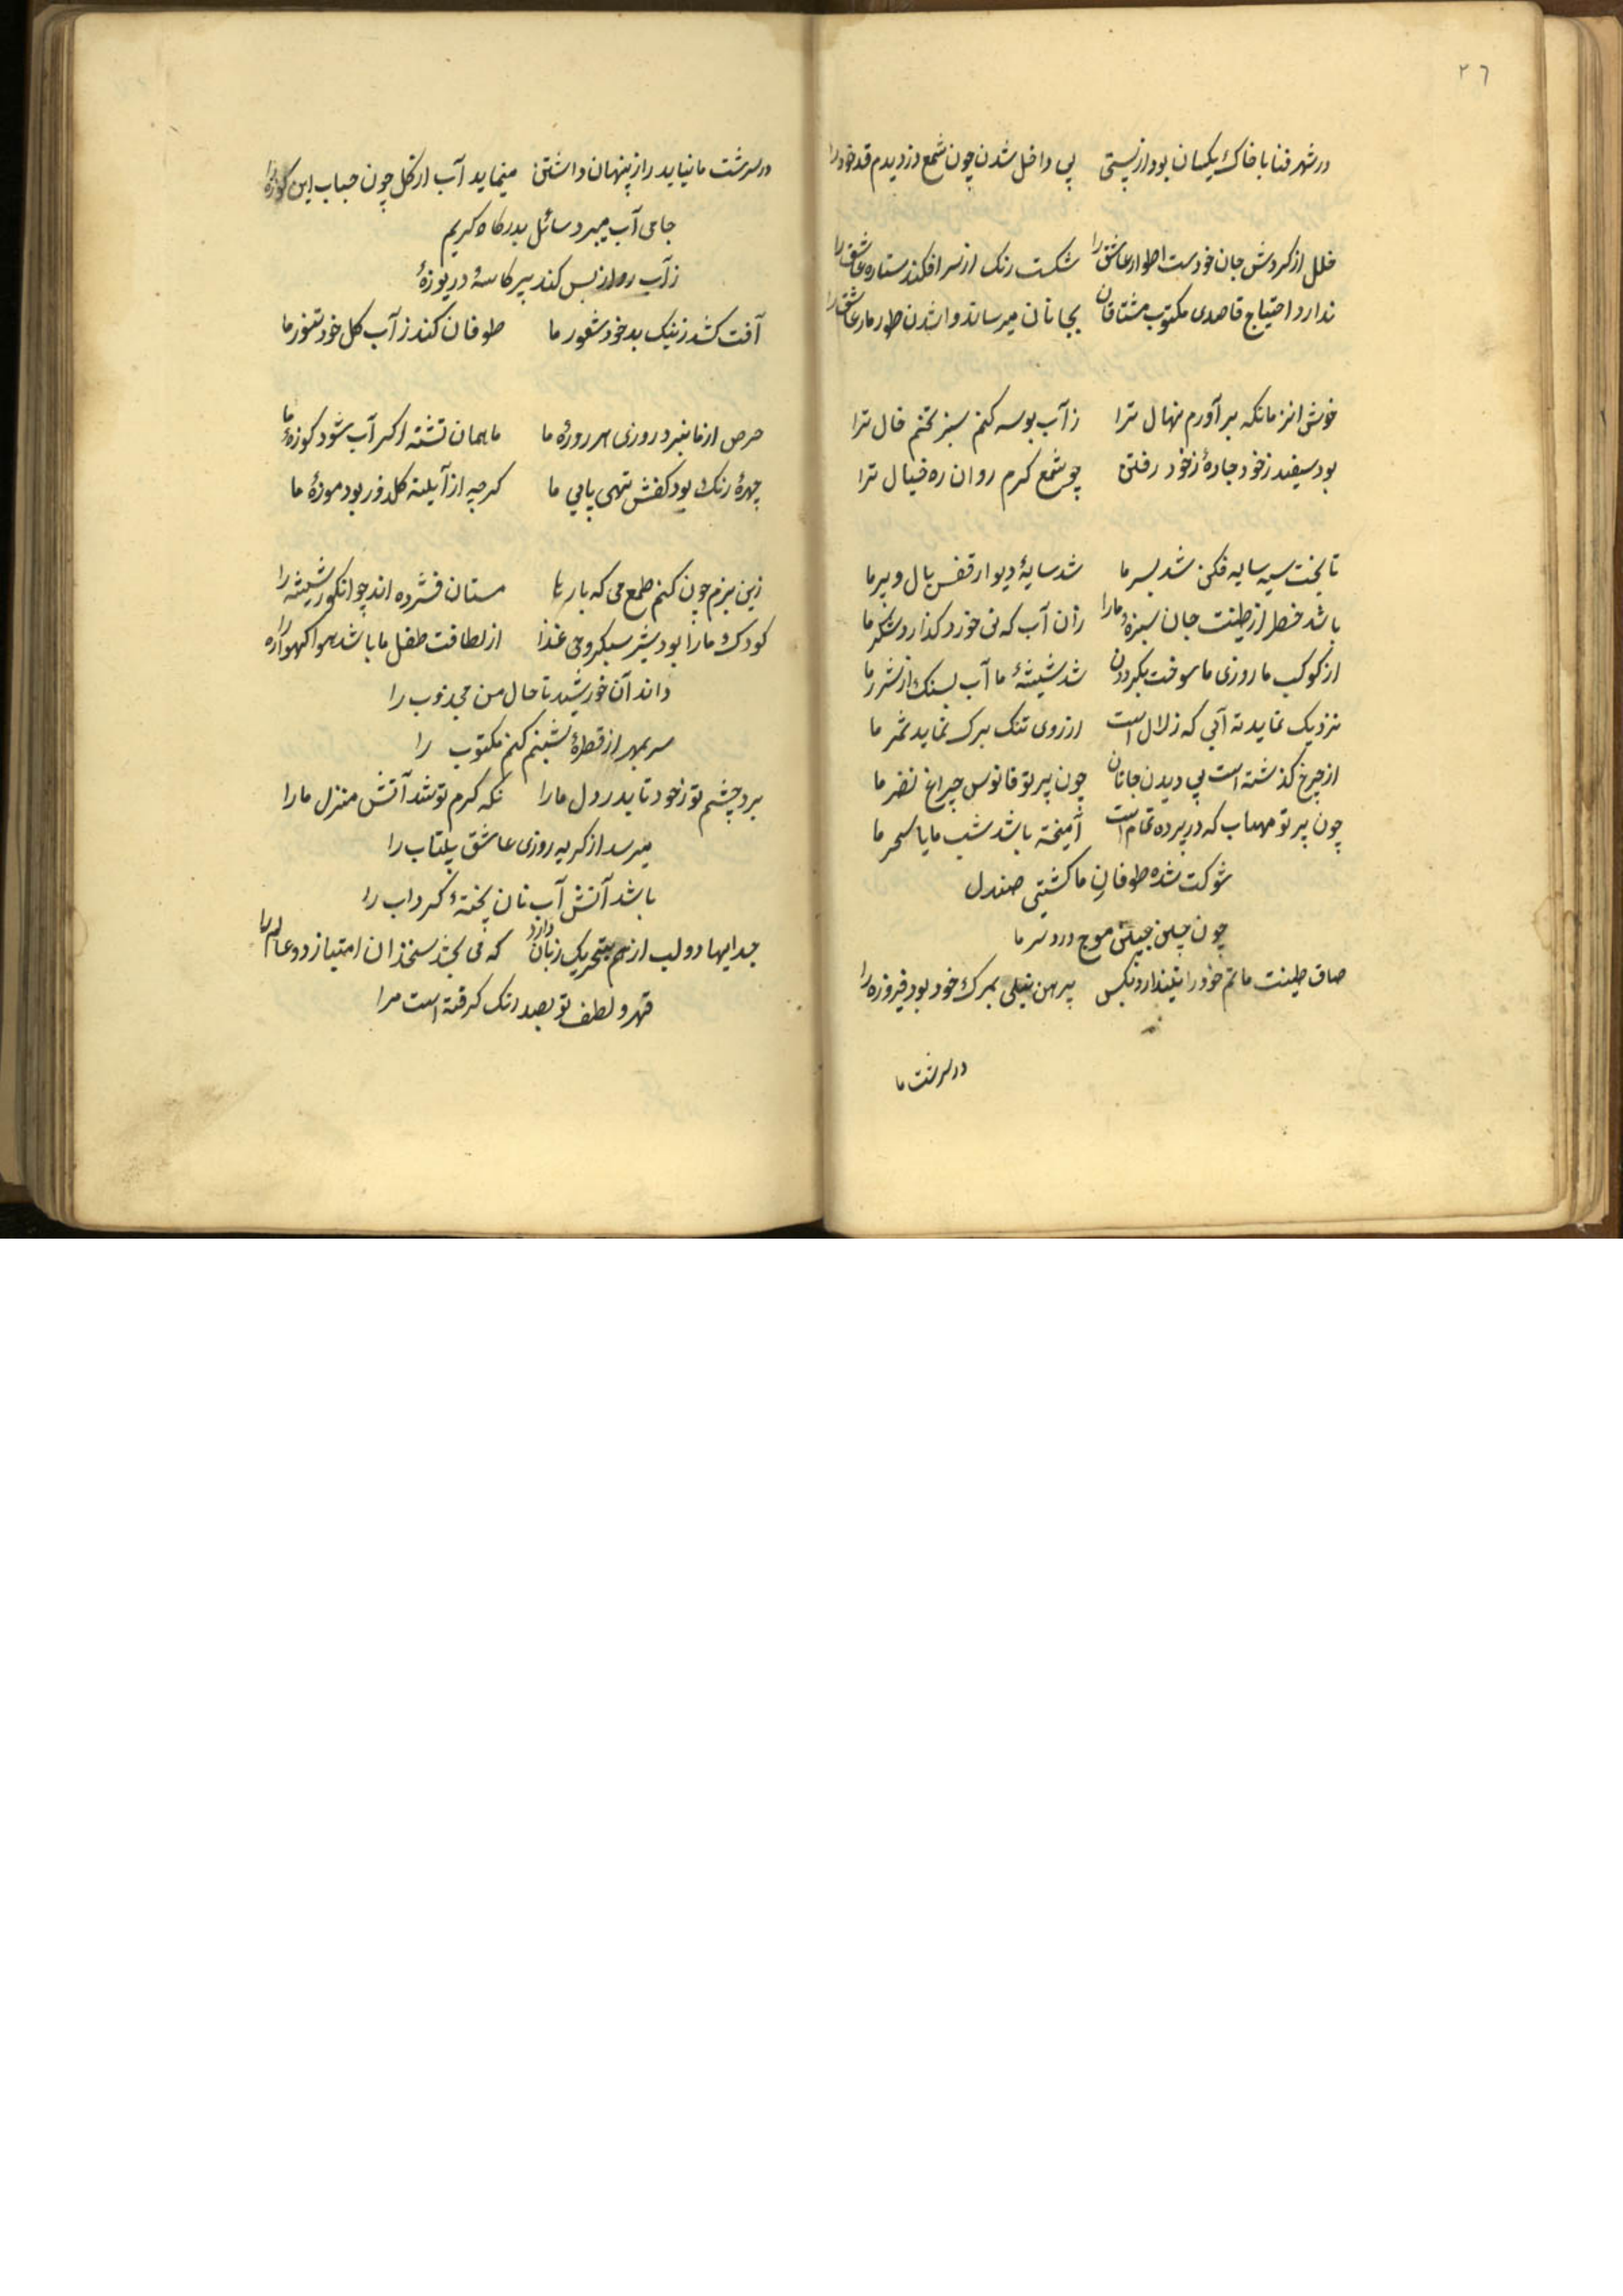 ٢٦
در شهر فنا با خاك يكسان بود از پستى پى داخل شدن چون شمع دزديدم قد خود را
خلل از كردش جان خودست اطوار عاشق را شكست رنك از سر افكند ستاره عاشق را
ندارد احتياج قاصدى مكتوب مشتاقان بجانان ميرساند وا شدن طومار عاشق را
خوش انزمانكه بر آورم نهال ترا ز آب بوسه كنم سبز تخم خال ترا
بود سفيد ز خود جادۀ ز خود رفتن چو شمع كرم روان ره خيال ترا
تا بخت سيه سايه فكن شد بسر ما شد سايۀ ديوار قفس بال و پر ما
باشد خطر از طينت جان سبزۀ ما را زان آب كه نى خورد كذارد شكر ما
از كوكب ما روزى ما سوخت بكردون شد شيشۀ ما آب بسنك از شرر ما
نزديك نمايد ته آبى كه زلال است از روى تنك برك نمايد ثمر ما
از چرخ كذشته است پى ديدن جانان چون پرتو فانوس چراغ نضر ما
چون پرتو مهتاب كه در پرده تمام است آميخته باشد شب ما با سحر ما
شوكت شده طوفان ما كشتى صندل
چون چين جبين موج درد سر ما
صاف طينت ماتم خود را نيندازد بكس پيرهن نيلى بمرك خود بود فيروزه را
در سرشت ما
در سرشت ما نيايد راز پنهان داشتن مينمايد آب از كل چون حباب اين كوزه را
جامى آب ميبرد سائل بدركاه كريم
ز آب رو از بس كند پر كاسۀ دريوزۀ
آفت كشد ز نيك بد خود شعور ما طوفان كند ز آب كل خود تنور ما
حرص از ما نبرد روزى هر روزۀ ما ماهمان تشنه اكر آب شود كوزۀ ما
چهرۀ رنك بود كفش تهى پايى ما كرچه از آبله كلدوز بود موزۀ ما
زين بزم چون كنم طمع مى كه بارها مستان فشرده اند چو انكور شيشه را
كودك ما را بود شير سبكروحى غذا از لطافت طفل ما باشد هوا كهواره را
داند آن خورشيد تا حال من مجذوب را
سر بمهر از قطرۀ شبنم كنم مكتوب را
برد چشم تو ز خود تا بدر دل ما را نكه كرم تو شد آتش منزل ما را
ميرسد از كريه روزى عاشق بيتاب را
باشد آتش آب نان پختۀ كرداب را
جدايها دو لب از هم بتحريك زبان دارد كه مى بخشد سخندان امتياز دو عالم را
قهر و لطف تو بصد رنك كرفته است مرا